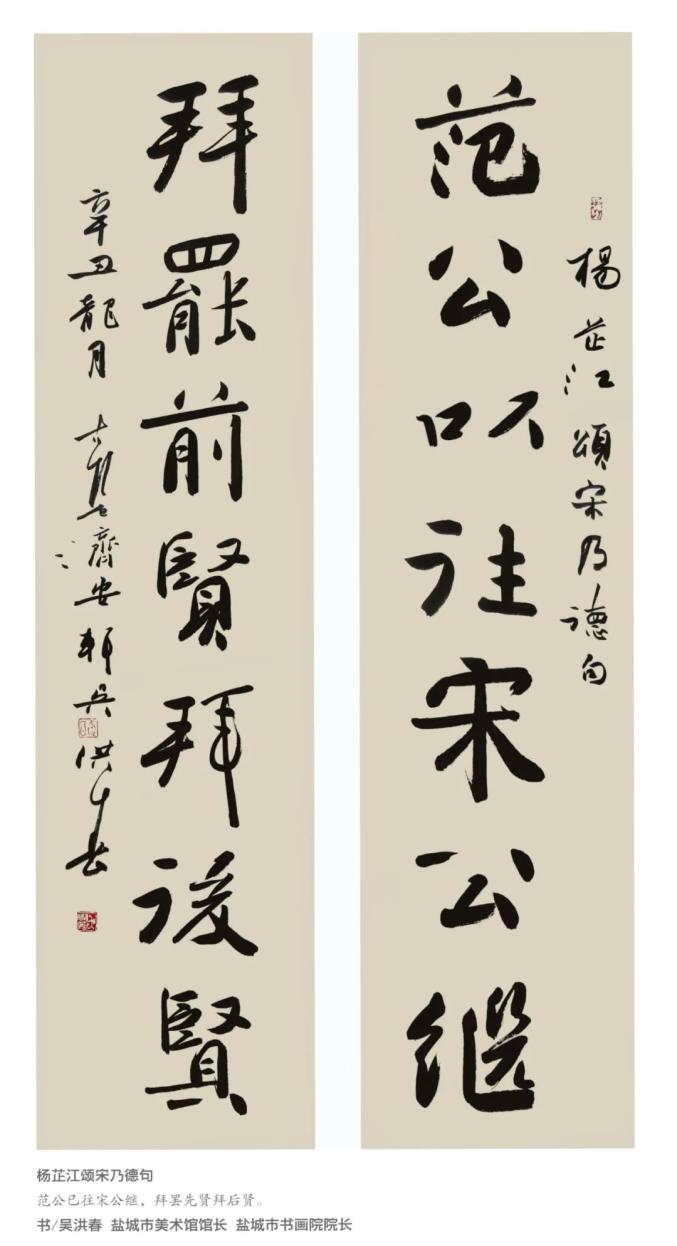 楊芷江頌宋乃德句
范公以往宋公继
拜罷前賢拜後賢
辛丑龍月
濟安軒吳洪春
杨芷江颂宋乃德句
范公已往宋公继，拜罢先贤拜后贤。
书/吴洪春 盐城市美术馆馆长 盐城市书画院院长